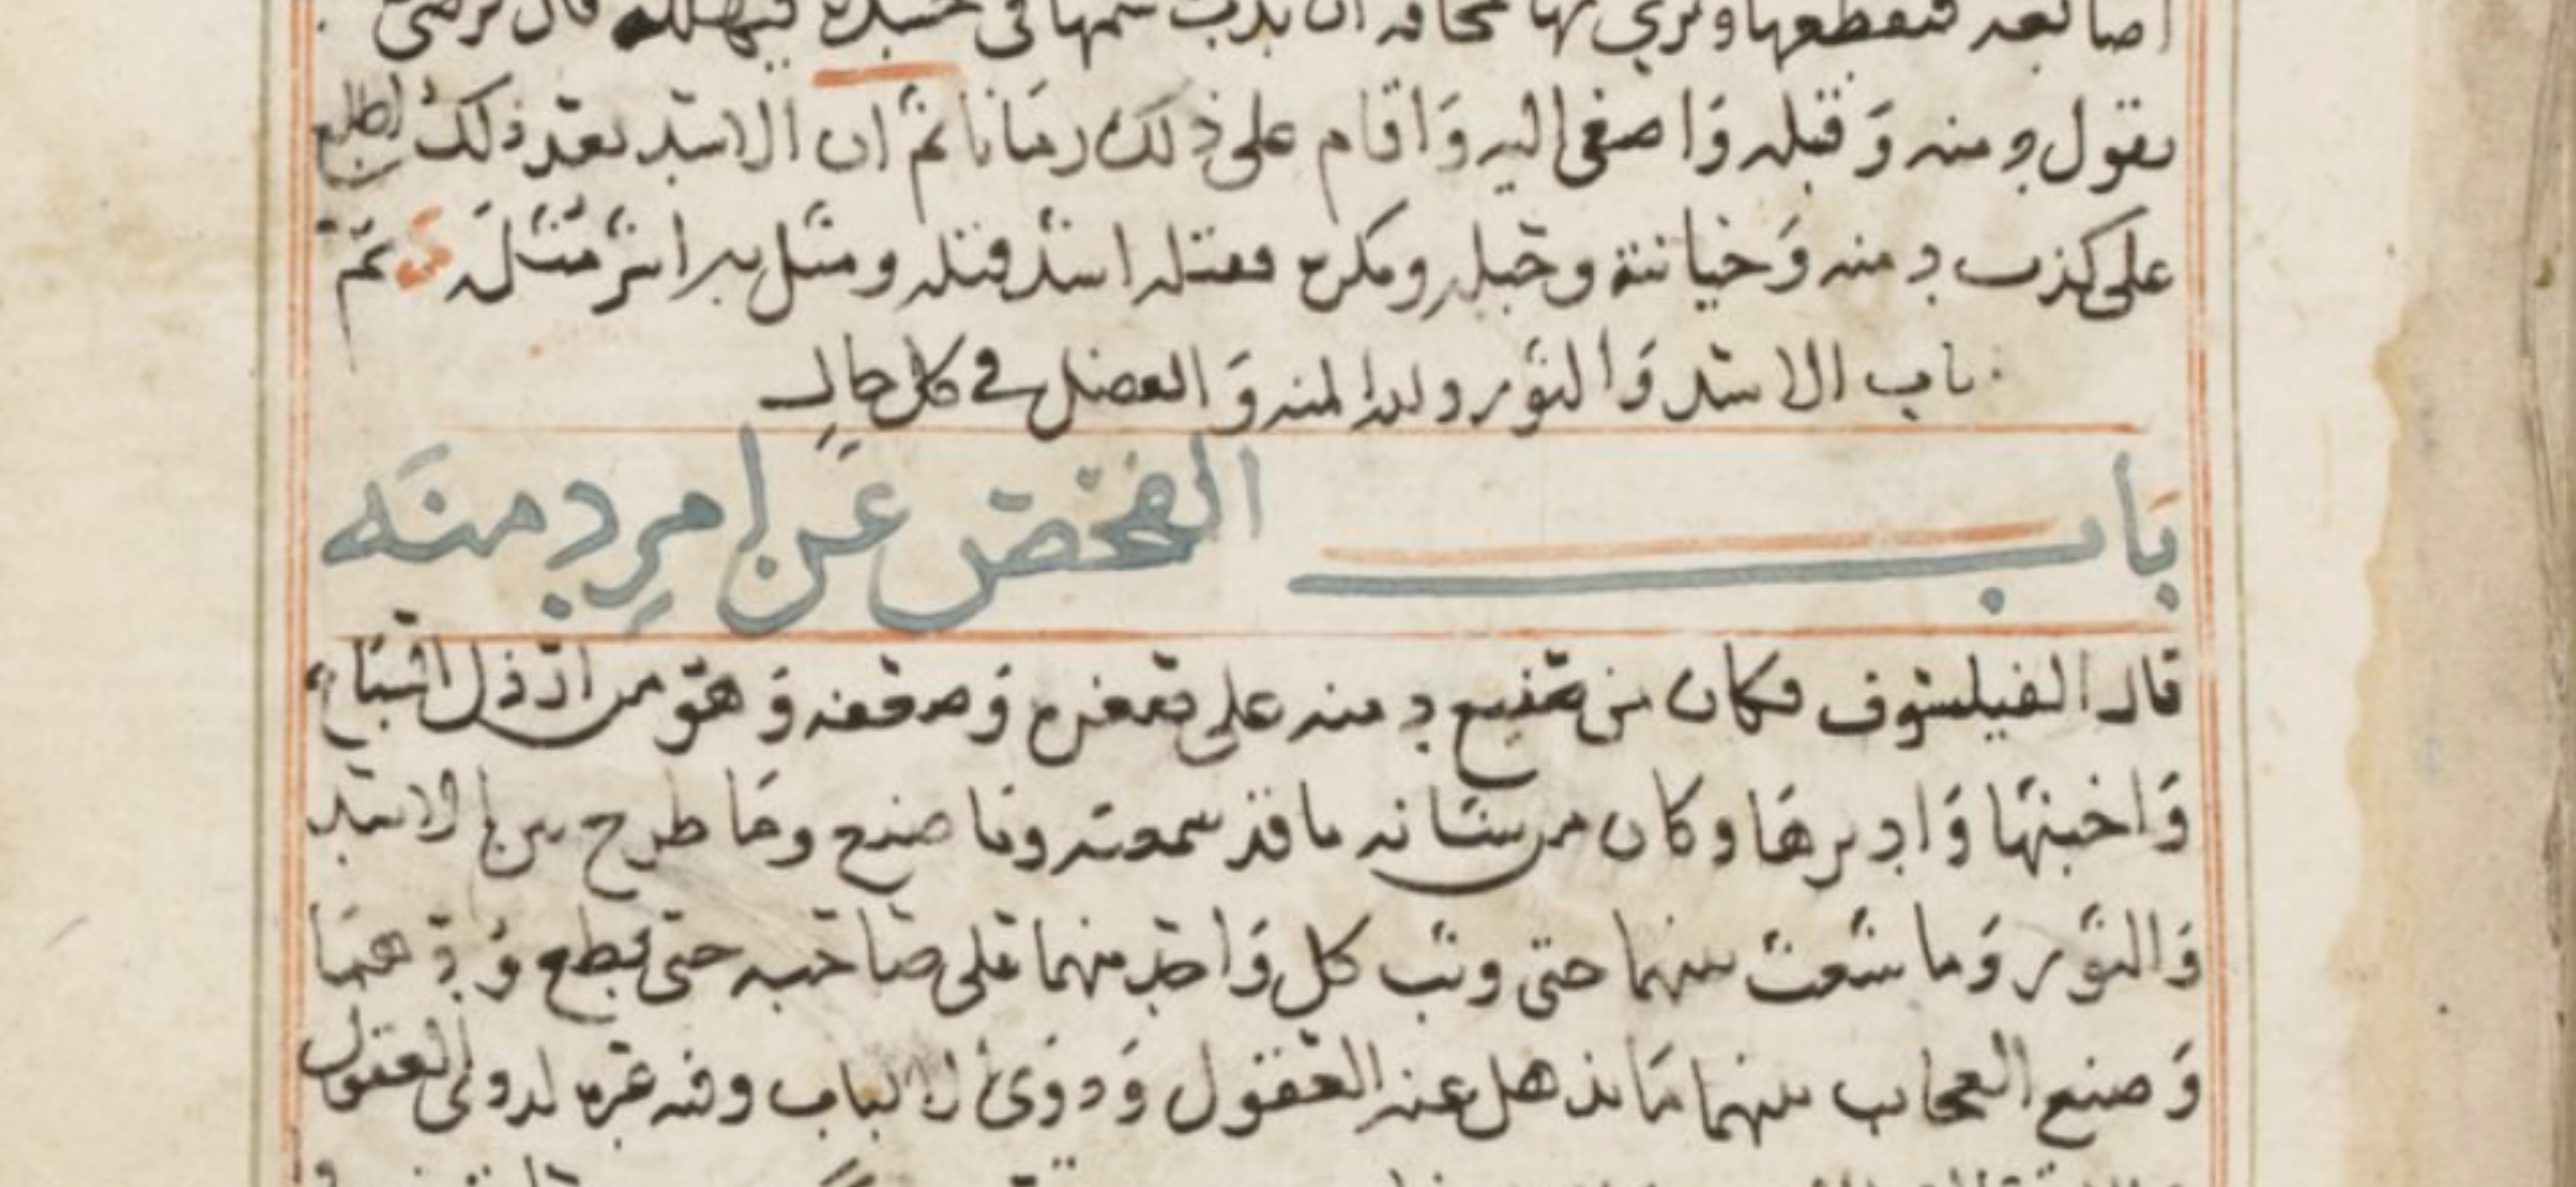 اصابعه فيقطعها ويرمي بها مخافة ان يدب سمها في جسده فيهلكه قال فرضي
بقول دمنه وَقبله وَاصغى اليه وَاقام على ذلك زمانا ثم ان الاسد بعد ذلك اطلع
على كذب دمنه وَخيانته وحيله ومكره فقتله اشد قتله ومثل به اشر مثله ثم
باب الاسد وَالثور ولله المنه وَالفضل في كل حال
بَاب الفحص عَن امرِ دمنَه
قال الفيلسوف فكان من صنيع دمنه على صغره وَضعفه وَهو من ارذل السباع
وَاخبثها وَادبرها وكان من شانه ما قد سمعته وما صنع وما طرح بين الاسد
وَالثور وَما شعث بينهما حتى وثب كل وَاحد منهما على صاحبه حتى قطع وُدهما
وَصنع العجاب بينهما مَا يذهل عنه العقول وَدوى الالباب وفيه عبره لدوى العقول